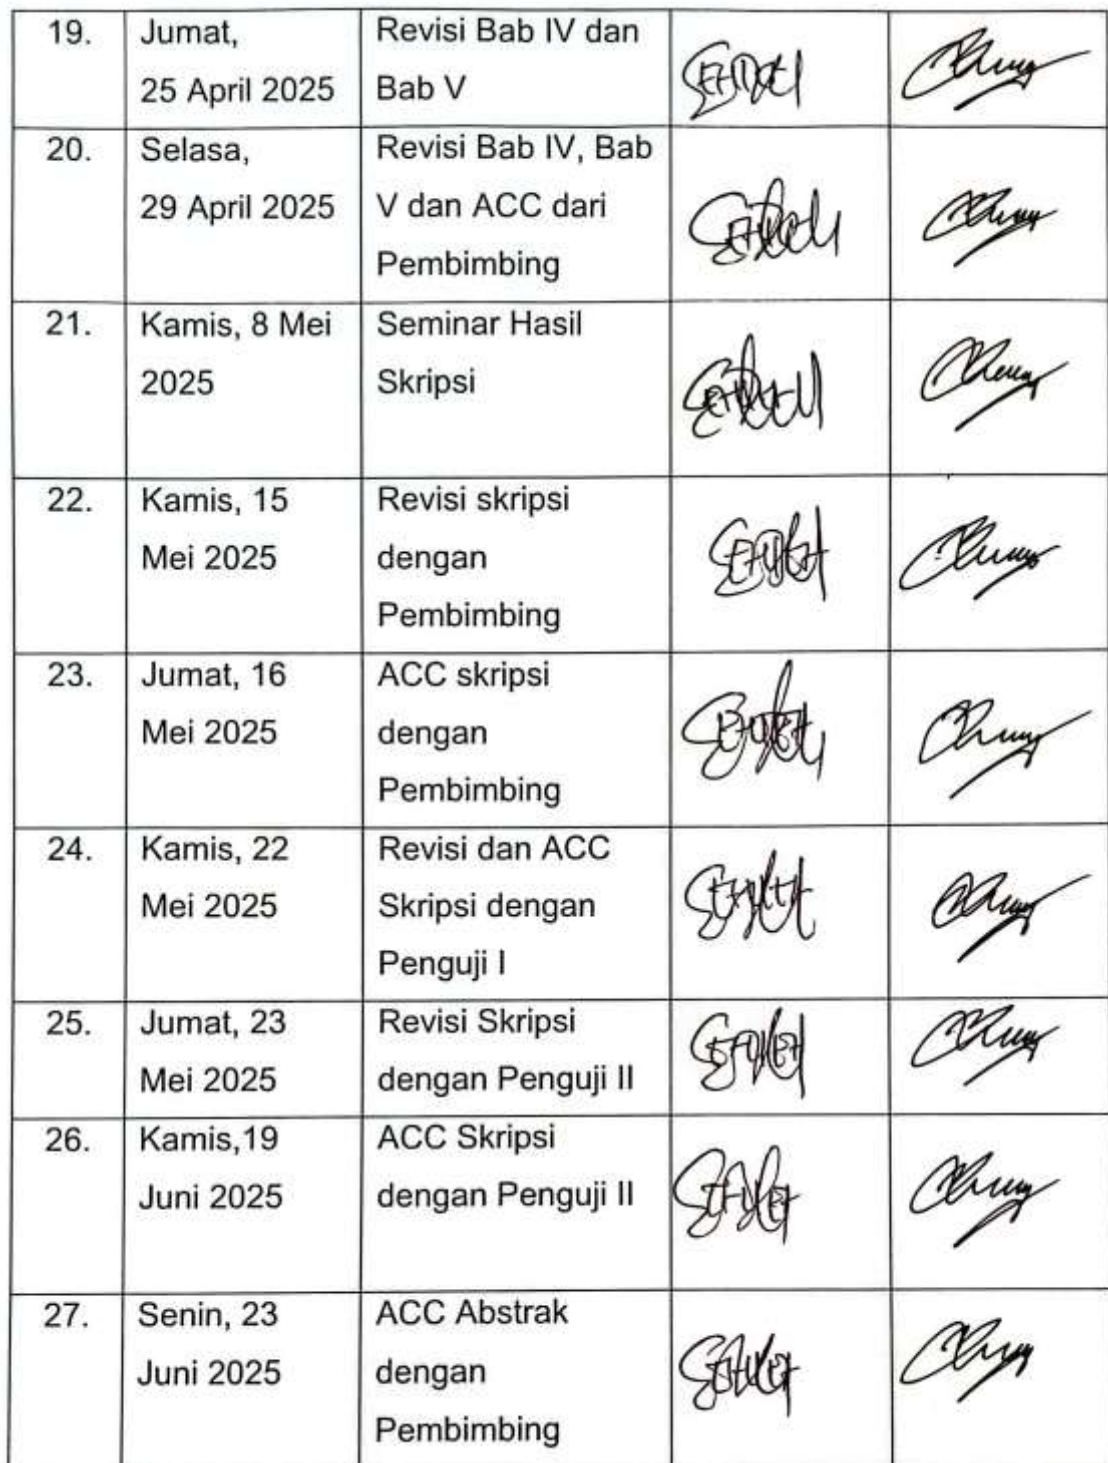 19.
Jumat,
25 April 2025
Revisi Bab IV dan
Bab V
20.
Selasa,
29 April 2025
Revisi Bab IV, Bab
V dan ACC dari
Pembimbing
21.
Kamis, 8 Mei
2025
Seminar Hasil
Skripsi
22.
Kamis, 15
Mei 2025
Revisi skripsi
dengan
Pembimbing
23.
Jumat, 16
Mei 2025
ACC skripsi
dengan
Pembimbing
24.
Kamis, 22
Mei 2025
Revisi dan ACC
Skripsi dengan
Penguji I
25.
Jumat, 23
Mei 2025
Revisi Skripsi
dengan Penguji II
26.
Kamis,19
Juni 2025
ACC Skripsi
dengan Penguji II
27.
Senin, 23
Juni 2025
ACC Abstrak
dengan
Pembimbing